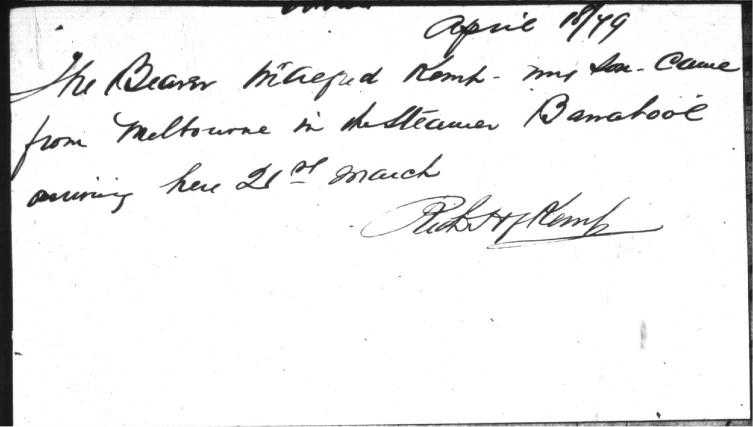 April 18/79
The Bearer Wilfred Kemp - my son - came
from Melbourne in the Steamer Barrabool
arriving here 21st March
Richd H Kemp